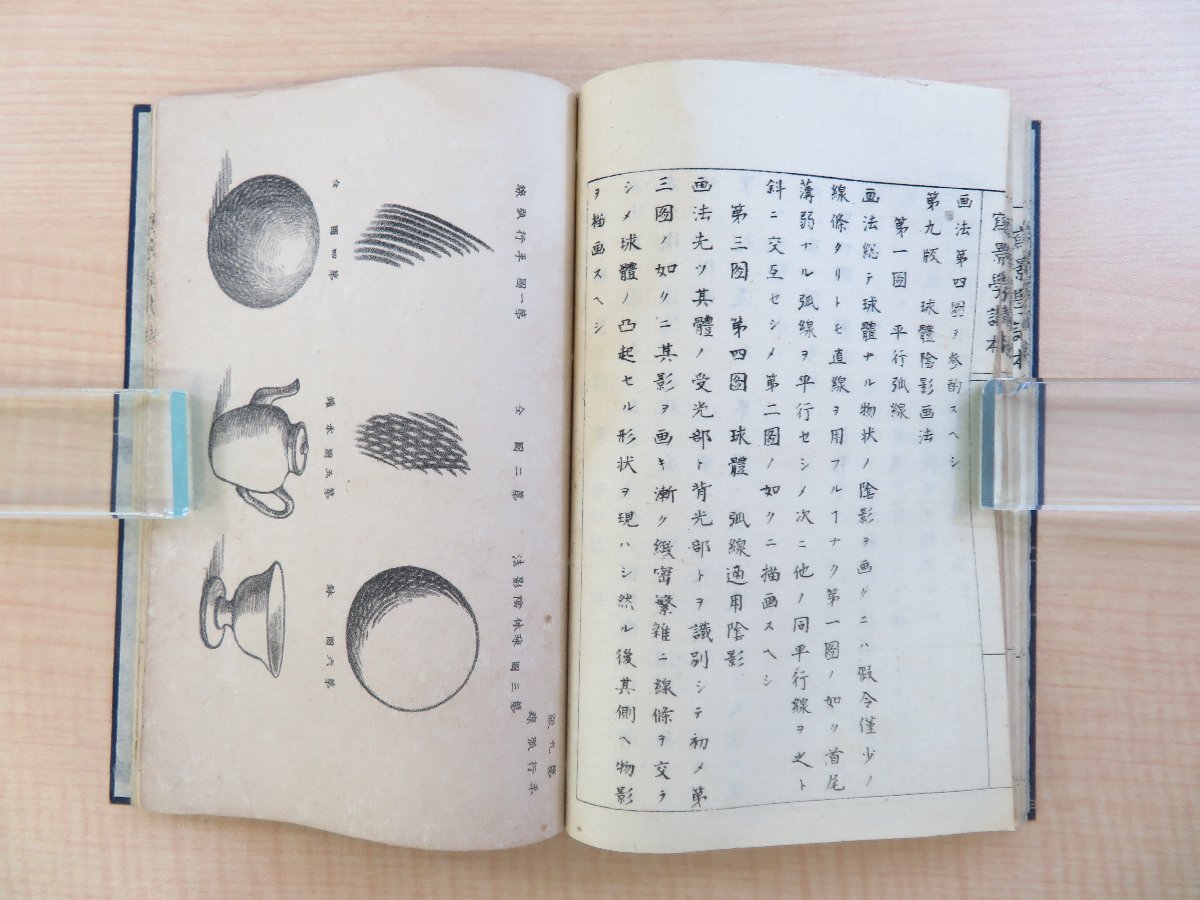 寫景學讀本
画法第四圖ヲ参酌スヘシ
第九版 球體陰影画法
第一圖 平行弧線
画法総テ球體ナル物状ノ陰影ヲ画クニハ假令僅少ノ
線條タリトモ直線ヲ用フルヿナク第一圖ノ如ク首尾
薄弱ナル弧線ヲ平行セシメ次ニ他ノ同平行線ヲ之ト
斜ニ交互セシメ第二圖ノ如クニ描画スヘシ
第三圖 第四圖 球體 弧線適用陰影
画法先ツ其體ノ受光部ト背光部トヲ識別シテ初メ第
三圖ノ如クニ其影ヲ画キ漸ク緻密繁雑ニ線條ヲ交テ
シメ球體ノ凸起セル形状ヲ現ハシ然ル後其側ヘ物影
ヲ描画スヘシ
第九版
平行弧線
第一圖 平行弧線
第二圖 仝
第三圖 球体陰影法
第四圖 仝
第五圖 水
第六圖